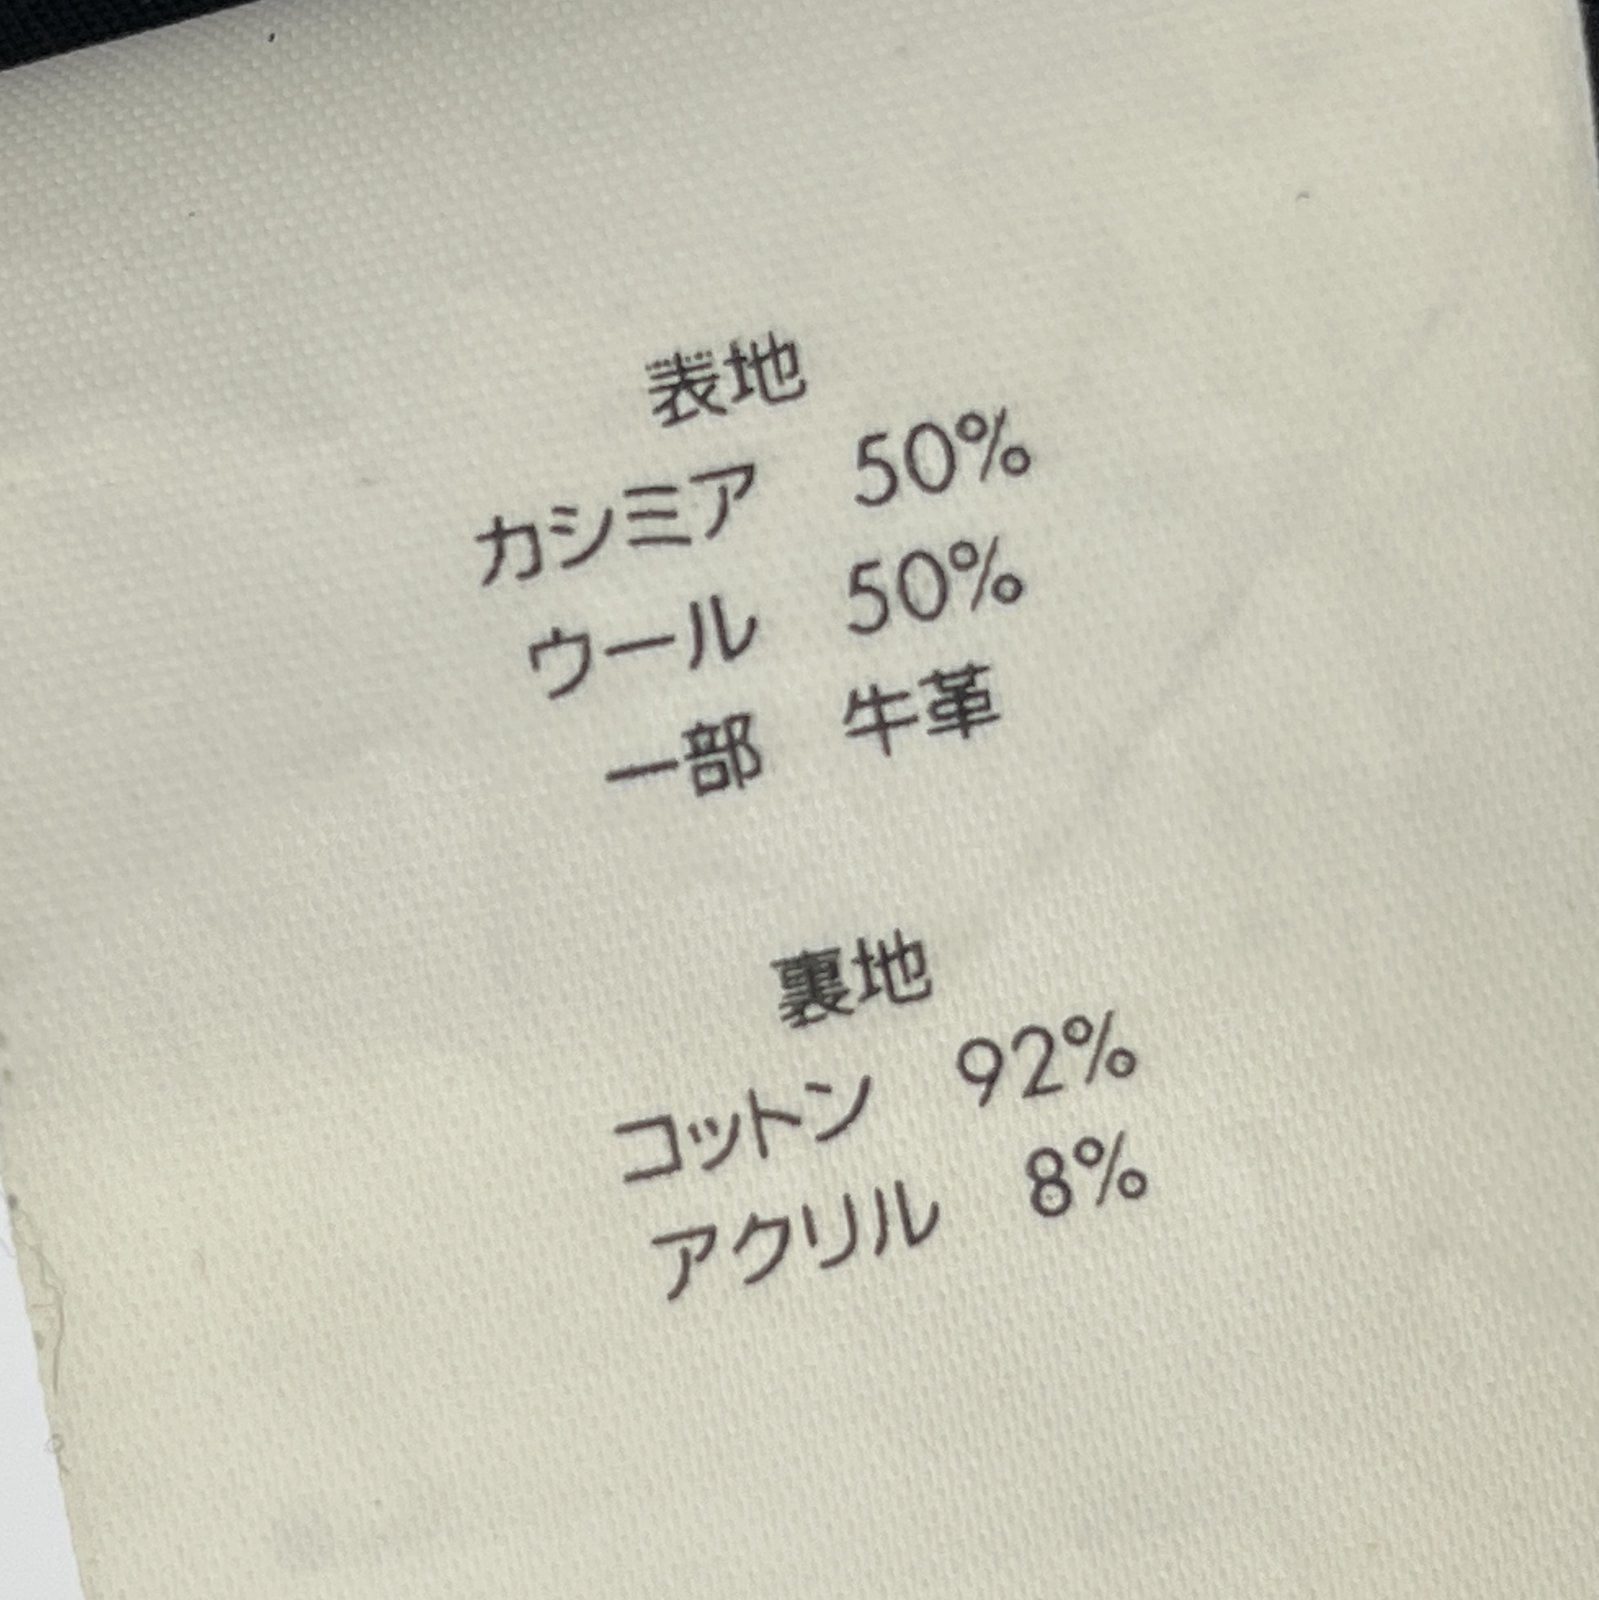 表地
カシミア 50%
ウール 50%
一部 牛革
裏地
コットン 92%
アクリル 8%